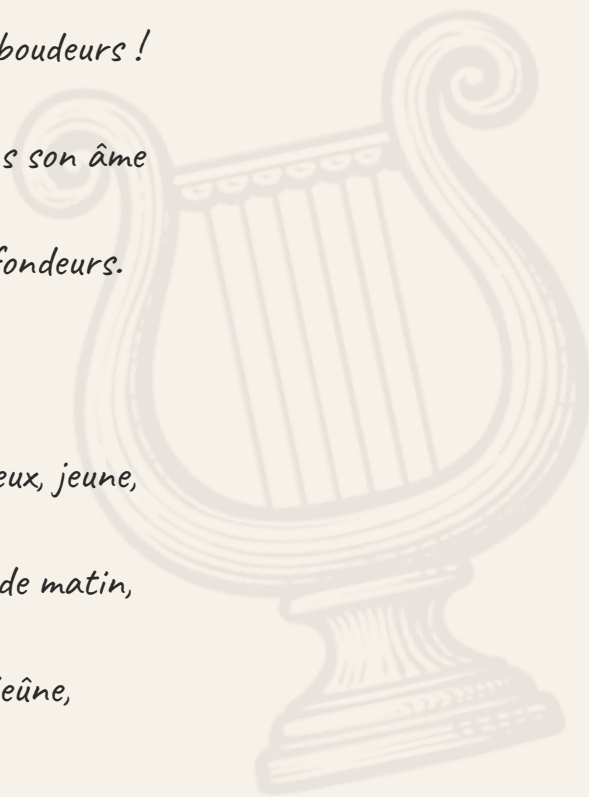 boudeurs !
s son âme
fondeurs.
eux, jeune,
de matin,
jeûne,